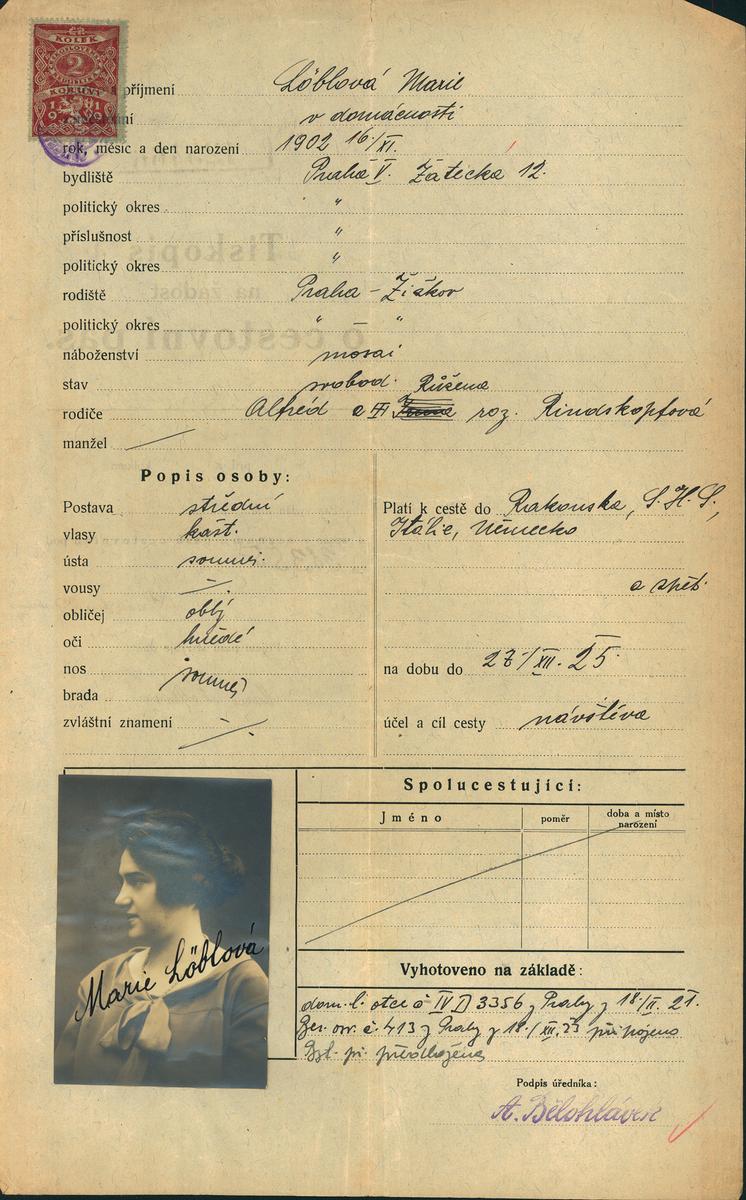 KOLEK
ČESKOSLOVENSKÁ
REPUBLIKA
2
KORUNY
1919
příjmení Löblová Marie
v domácnosti
rok, měsíc a den narození 1902 16/XI.
bydliště Praha V. Žatecká 12.
politický okres "
příslušnost "
politický okres "
rodiště Praha – Žižkov
politický okres " – "
náboženství mosai
stav svobod. Růžena
rodiče Alfréd a roz. Rindskopfová
manžel
Popis osoby:
Postava střední
vlasy kašt.
ústa soumě.
vousy –.
obličej oblý
oči hnědé
nos souměr
brada
zvláštní znamení –.
Platí k cestě do Rakouska, S.H.S.,
Itálie, Německo
a zpět.
na dobu do 27/XII. 25.
účel a cíl cesty návštěva
Spolucestující:
Jméno poměr doba a místo narození
Marie Löblová
Vyhotoveno na základě:
dom. l. otce č IV D 3356 z Prahy z 18/II. 21.
Ber. ov. č. 413 z Prahy z 18/XII. 23 připojeno
při. předložena
Podpis úředníka:
A. Bělohlávek
Tiskopis
na žádost
o cestovní pas.